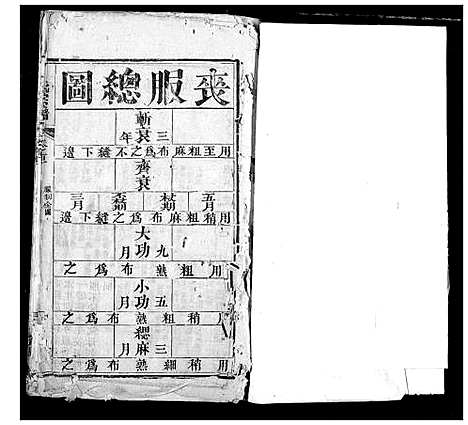 喪服總圖
斬衰三年
用至粗麻布爲之不縫下邊
齊衰
五月 杖期 不杖期 三月
用稍粗麻布爲之縫下邊
大功九月
用粗熟布爲之
小功五月
用稍粗熟布爲之
緦麻三月
用稍細熟布爲之